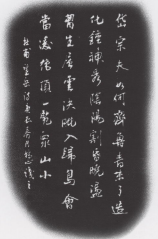 岱宗夫如何齊魯青未了造
化鍾神秀陰陽割昏曉盪
胸生层雲決眦入歸鳥會
當凌絕頂一覽眾山小
杜甫望岳